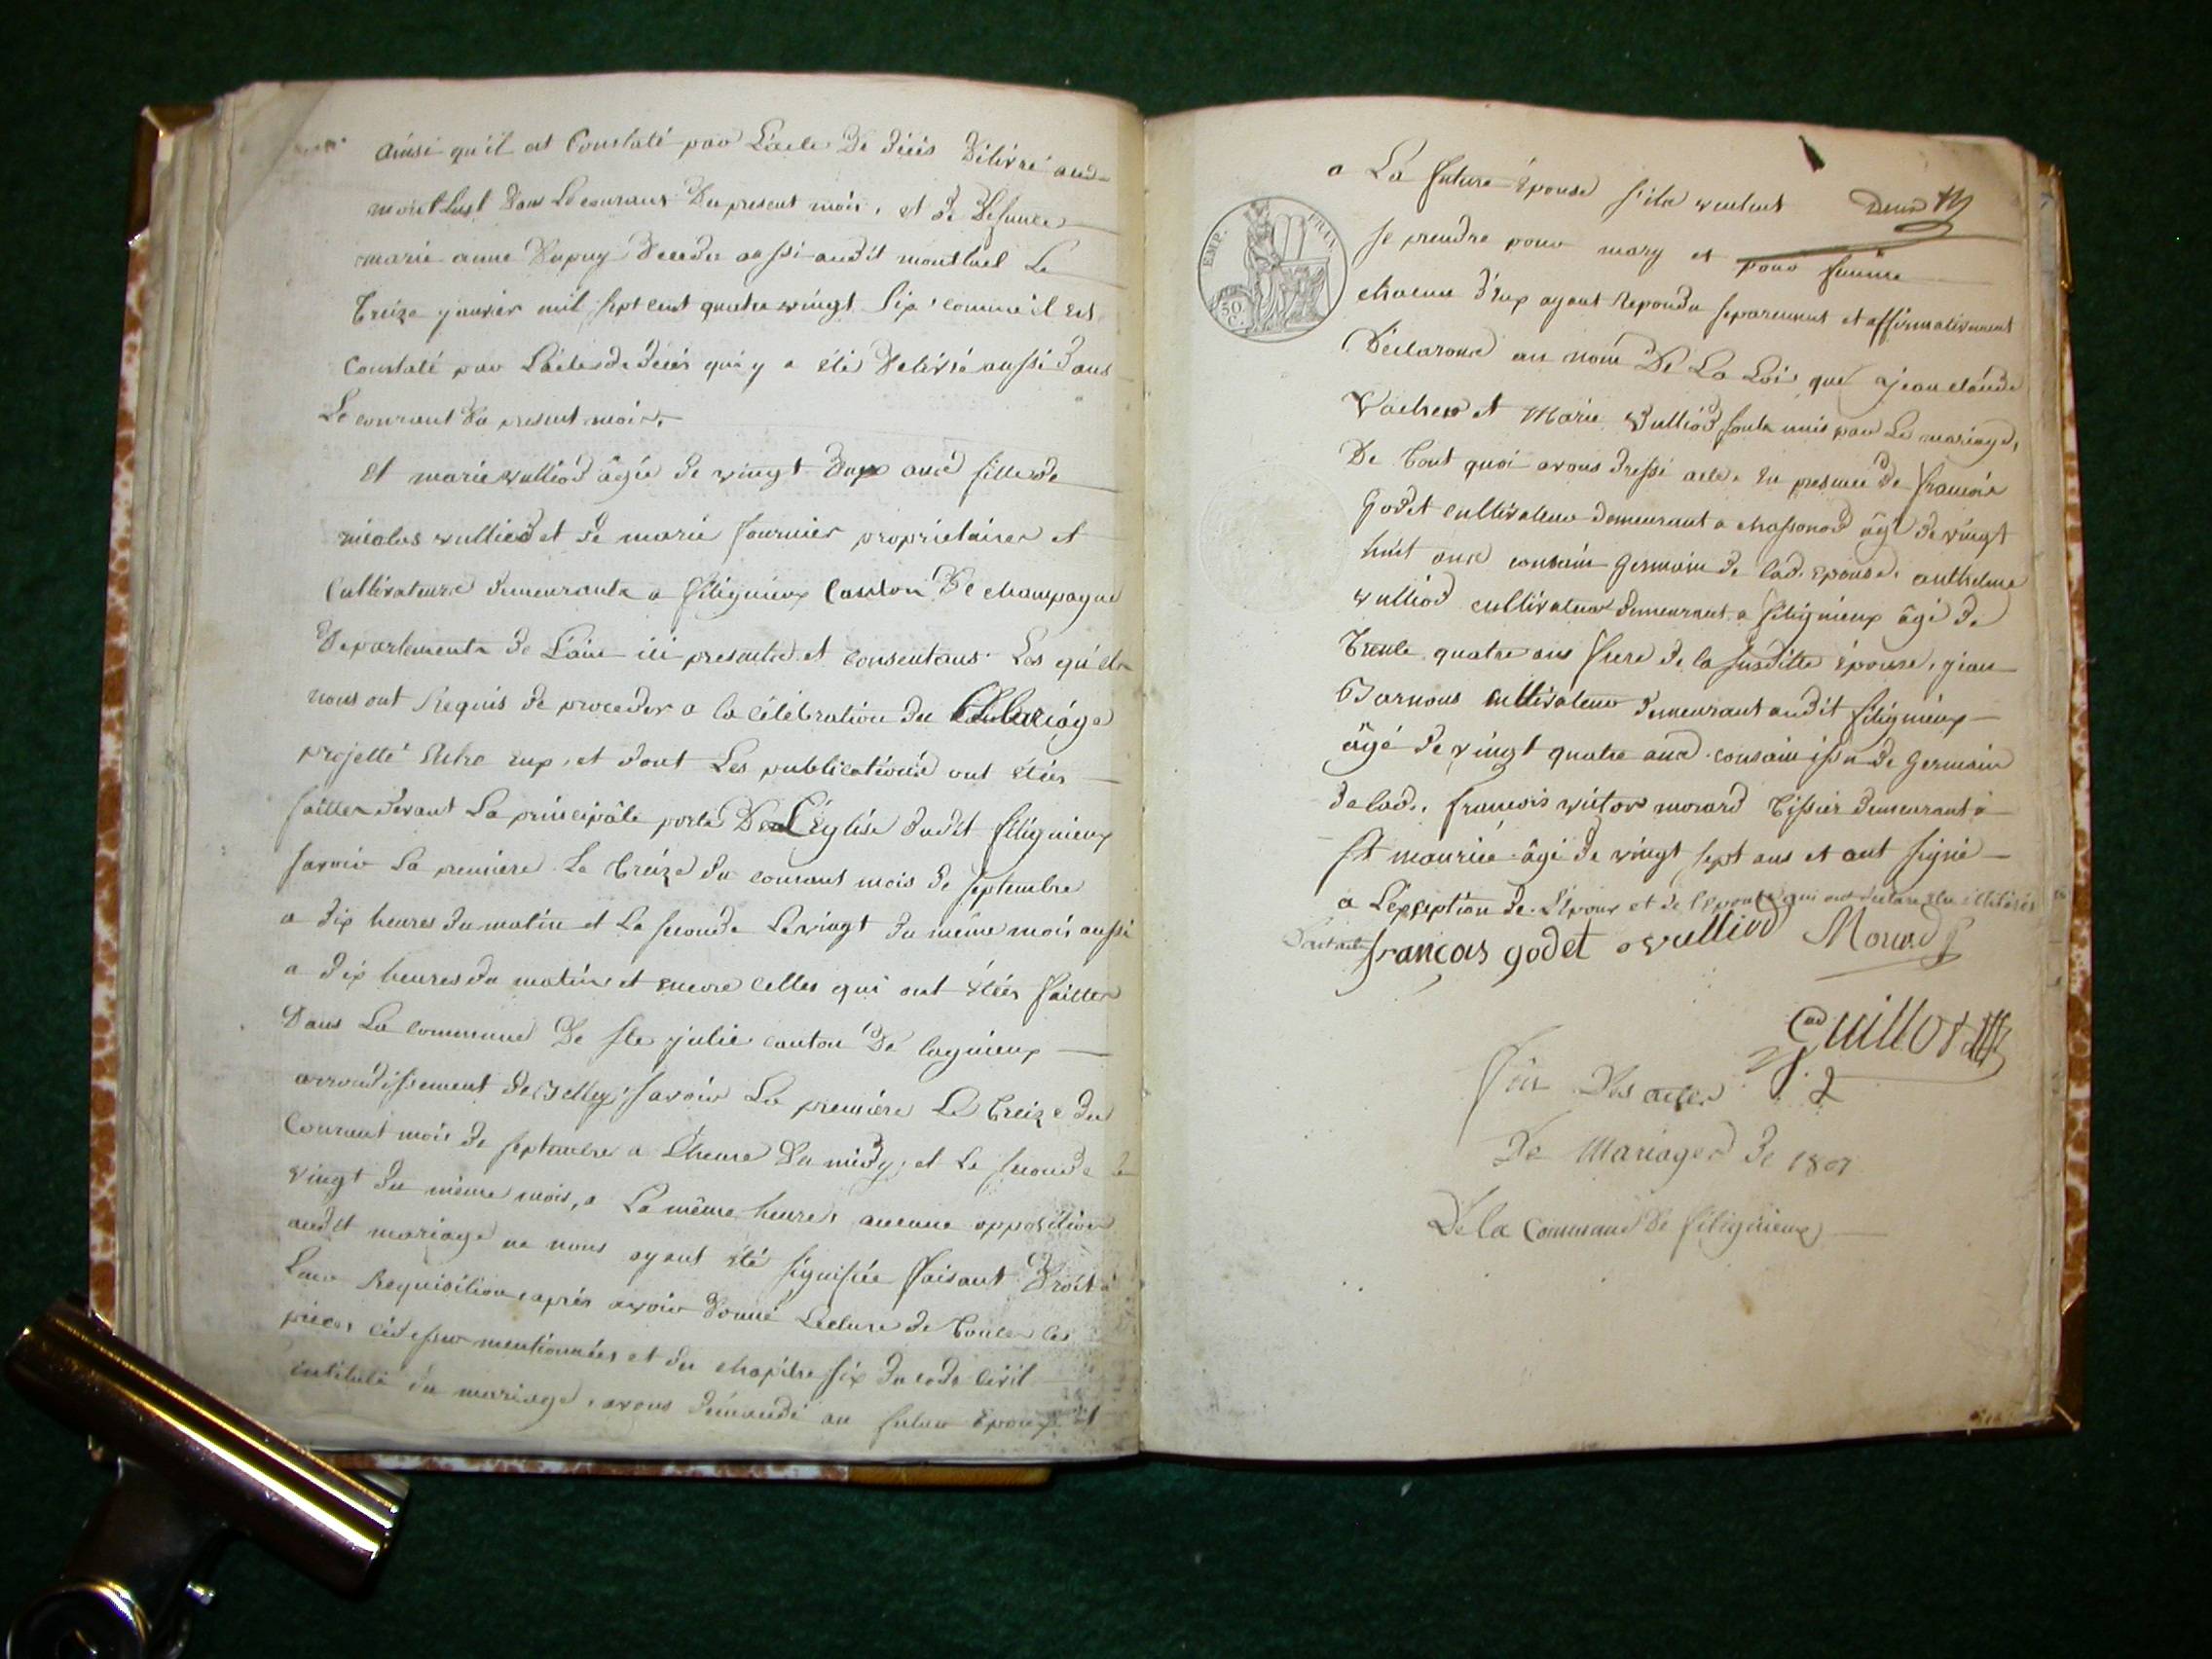 ainsi qu'il est Constaté par L'acte De décés Délivré aud
montluel Dans Le courant Du present mois, et De Defunte
marie anne Dupuy Decedée aussi audit montluel Le
treize janvier mil sept cent quatre vingt Six comme il est
Constaté par L'acte de décés qui y a été Delivré aussi dans
Le courant Du present mois.
Et marie vulliod âgée de vingt Deux ans fille de
nicolas vulliod et de marie fournier proprietaires et
Cultivateurs demeurants a filignieux Canton De champagne
Departement de L'ain ici presents et consentans. Les quels
nous ont Requis de proceder a la célébration du Mariage
projetté entre eux, et dont Les publications ont étées
faittes devant La principâle porte De L'église dudit filignieux
savoir La premiere Le treize du courant mois de septembre
a dix heures du matin et La seconde Le vingt du même mois aussi
a dix heures du matin et encore celles qui ont étées faittes
Dans La commune De ste julie canton De lagnieux
arrondissement de Belley, savoir La première Le treize du
Courant mois de septembre a L'heure Du midy, et La seconde le
vingt du même mois, a La même heure, aucune opposition
audit mariage ne nous ayant été signifiée faisant Droit à
Leur Requisition, après avoir Donné Lecture de toutes les
pièces cidessus mentionnées et du chapitre six du code civil
intitulé du mariage, avons demandé au futur Epoux et
a La future épouse s'ils veulent
se prendre pour mary et pour femme
chacun d'eux ayant Repondu separement et affirmativement
Déclarons au nom De La Loi que jean claude
Vacher et Marie Vulliod sont unis par Le mariage,
De tout quoi avons dressé acte, en presence de francois
Godet cultivateur demeurant a chassonod âgé de vingt
huit ans cousain Germain de lad. épouse, anthelme
vulliod cultivateur demeurant a filignieux âgé de
trente quatre ans frere de la susditte épouse, jean
Barnous cultivateur demeurant audit filignieux
âgé de vingt quatre ans cousain issu de Germain
de lad., francois victor morard tissier demeurant à
St maurice âgé de vingt sept ans et ont signé
a L'exception de L'époux et de l'épouse qui ont déclaré être illitérés
françois godet a vulliod Morard
Guillot
fin Des actes
De Mariages de 1807
De la Commune De filignieux
EMP. FRAN
50 C.